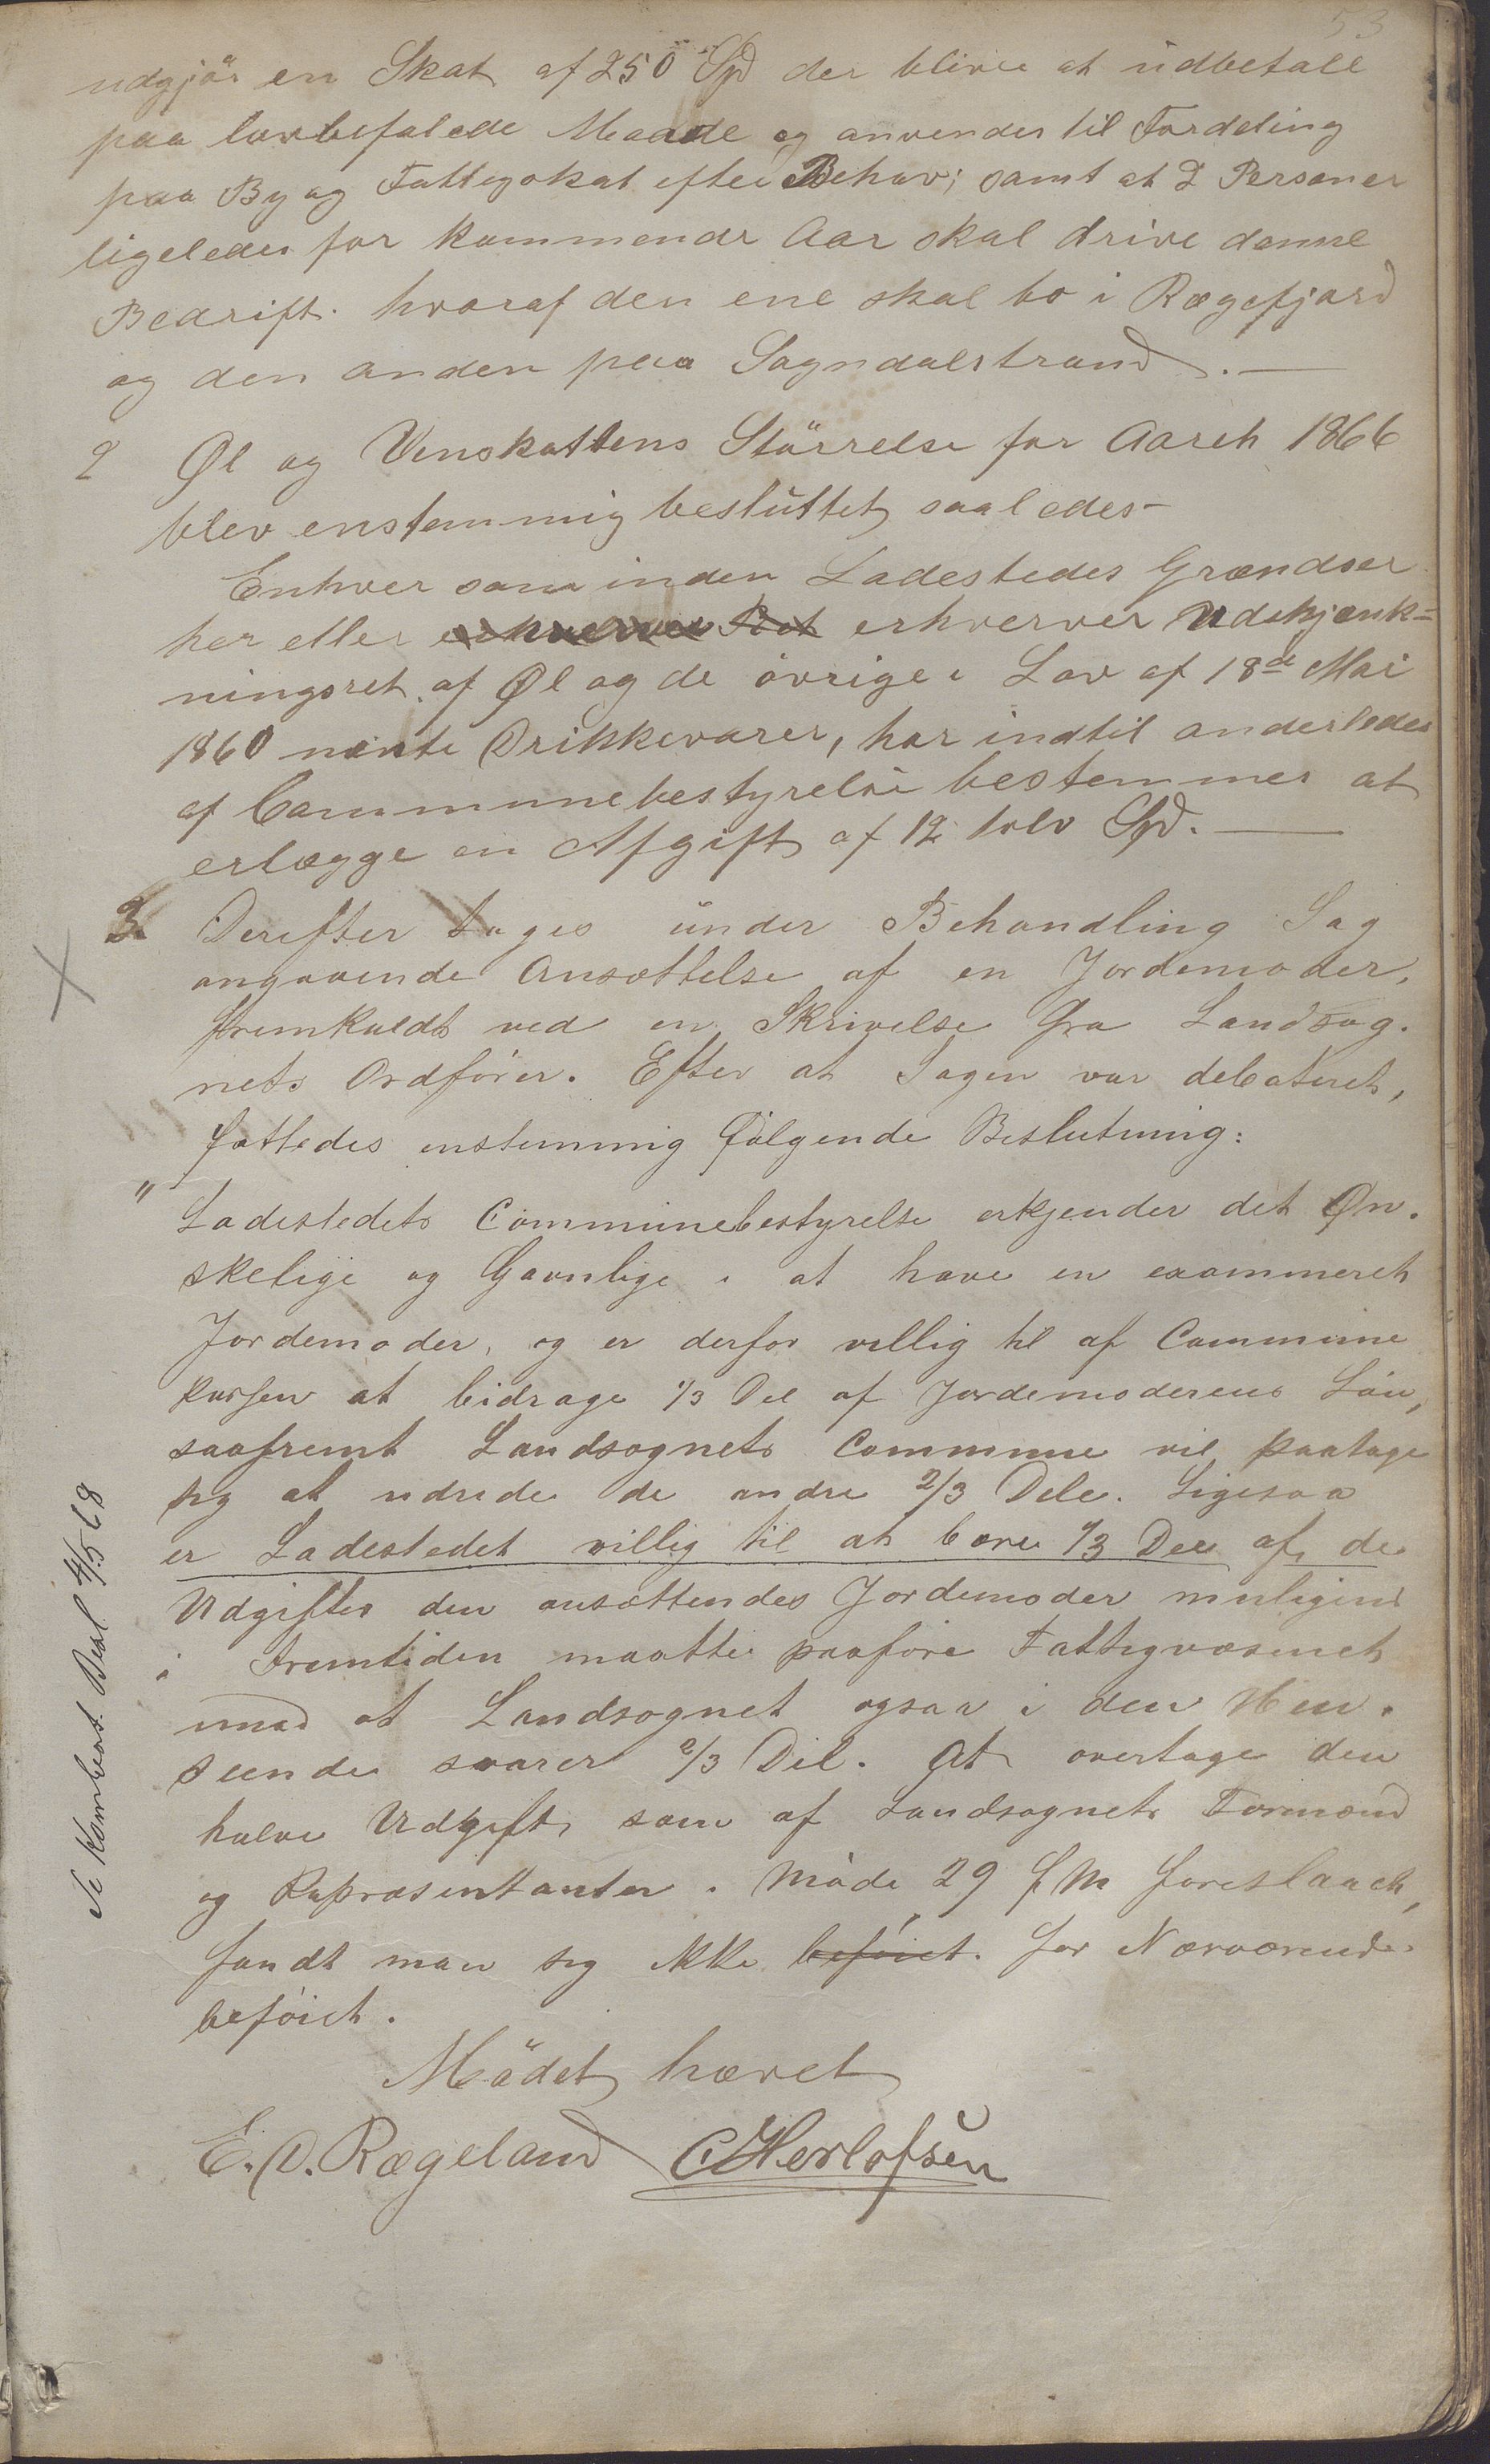 53
udgjör en Skat af 250 Spd der bliver at udbetale
paa lovbefalede Maade og anvendes til Fordeling
paa By og Fattigskat efter Behov; samt at 2 Personer
ligeledes for kommende Aar skal drive denne
Bedrift. hvoraf den ene skal bo i Rægefjord
og den anden paa Sogndalstrand. —
2 Øl og Vinskattens Störrelse for Aaret 1866
blev enstemmig besluttet saaledes —
Enhver som inden Ladestedes Grændser
har eller erhverver Ret erhverver Udskjænk=
ningsret af Øl og de övrige i Lov af 18de Mai
1860 nævnte Drikkevarer, har indtil anderledes
af Communebestyrelse bestemmes at
erlægge en Afgift af 12 tolv Spd. —
3. Derefter toges under Behandling Sag
angaaende Ansættelse af en Jordemoder,
fremkaldt ved en Skrivelse fra Landsog-
nets Ordförer. Efter at Sagen var debateret,
fattedes enstemmig fölgende Beslutning:
" Ladestedets Communebestyrelse erkjender det Øn-
skelige og Gavnlige i at have en examineret
Jordemoder, og er derfor villig til af Commune
kassen at bidrage 1/3 Del af Jordemoderens Lön,
saafremt Landsognets Commune vil paatage
sig at udrede de andre 2/3 Dele. Ligesaa
er Ladestedet villig til at bære 1/3 Del af de
Udgifter den ansættendes Jordemoder muligens
i Fremtiden maatte paaföre Fattigvæsenet
mod at Landsognet ogsaa i den Hen-
seende svarer 2/3 Del. At overtage den
halve Udgift, som af Landsognets Formænd
og Repræsentanter i Möde 29 f M foreslaaet,
fandt man sig ikke beföiet. for Nærværende
beföiet.
Mödet hævet
E. O. Rægeland CHerlofsen
Se Kombest. Besl 4/5 68